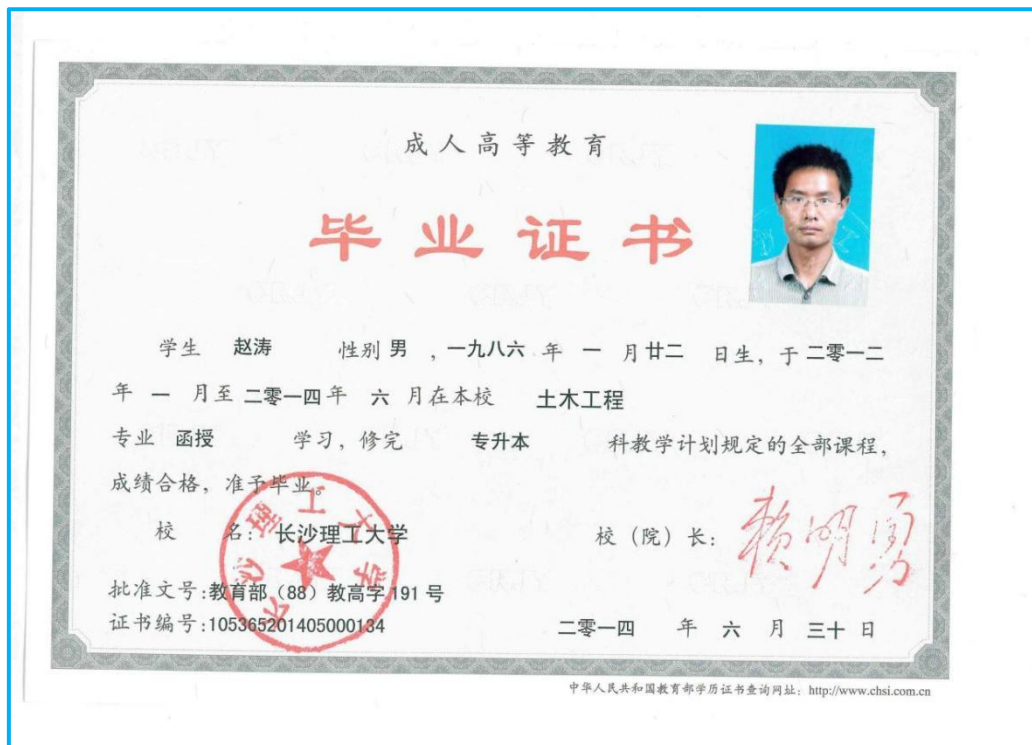 成人高等教育
毕业证书
学生 赵涛 性别 男 ，一九八六 年 一 月 廿二 日生，于 二零一二
年 一 月至 二零一四 年 六 月在本校 土木工程
专业 函授 学习，修完 专升本 科教学计划规定的全部课程，
成绩合格，准予毕业。
校 名：长沙理工大学
校（院）长：赖明勇
长沙理工大学
批准文号：教育部（88）教高字 191 号
证书编号：105365201405000134
二零一四 年 六 月 三十 日
中华人民共和国教育部学历证书查询网址：http://www.chsi.com.cn